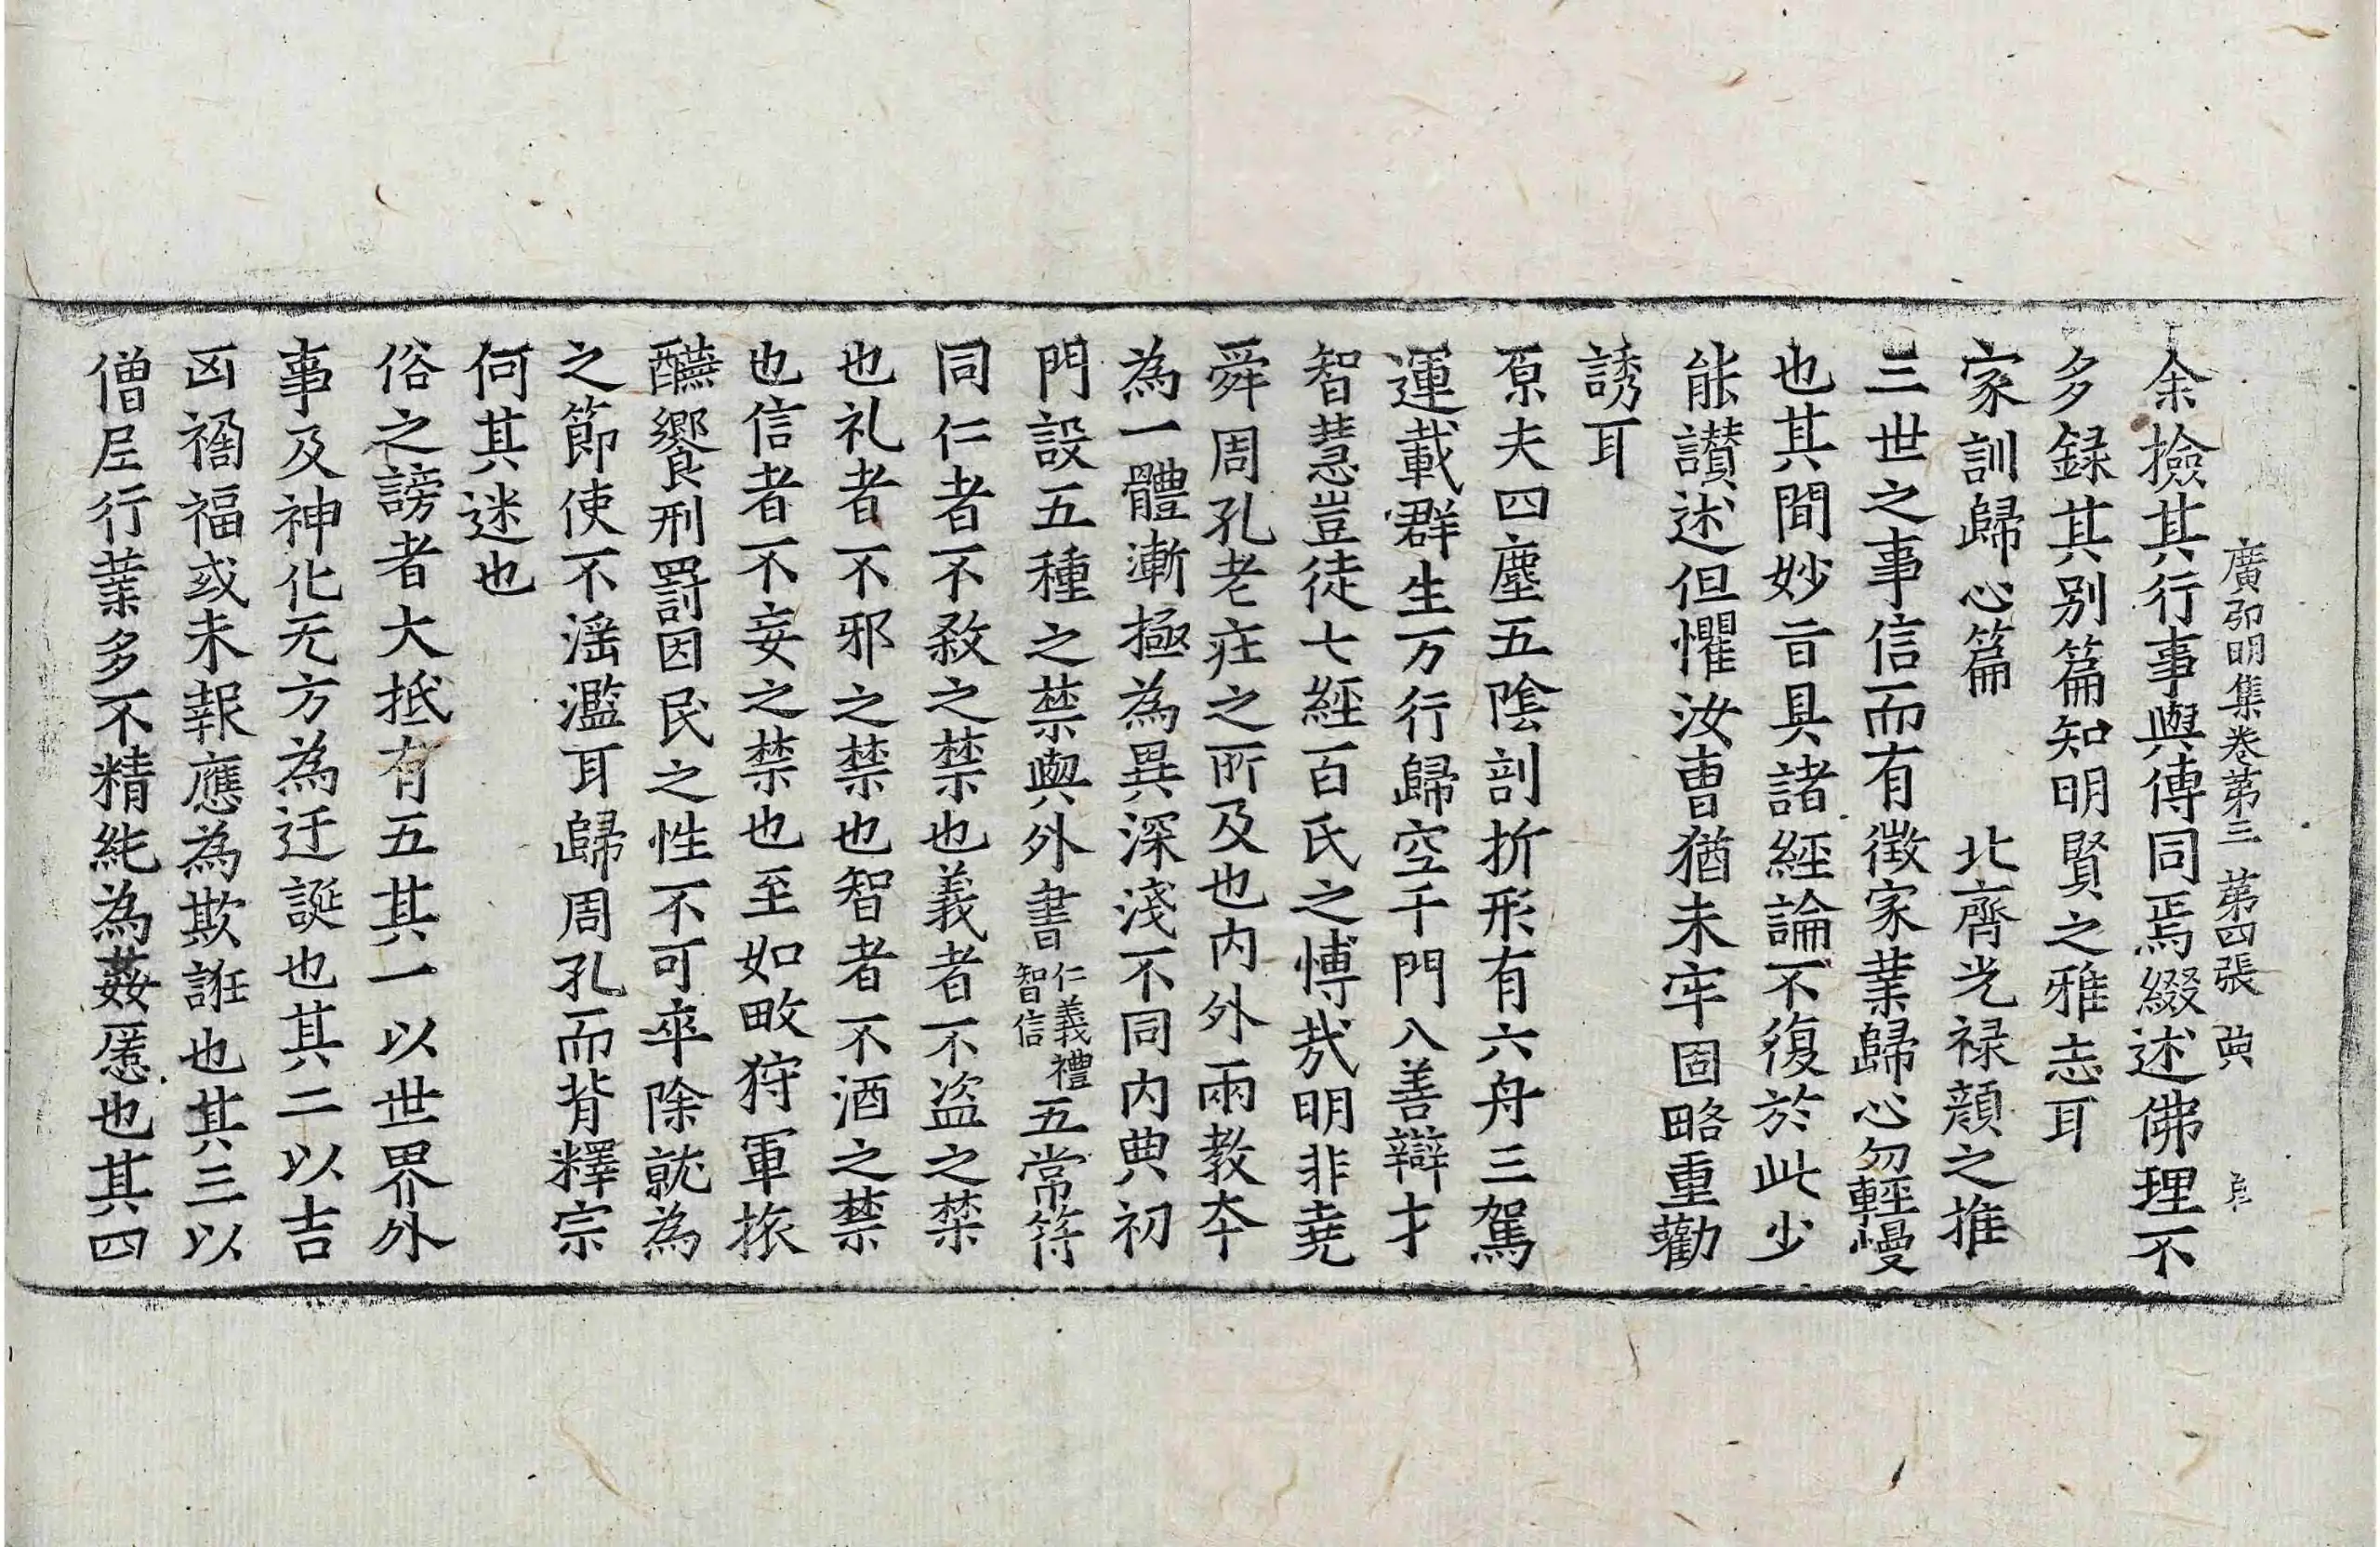 廣弘明集卷第三 第四張 典
余撿其行事與傳同焉綴述佛理不
多録其别篇知明賢之雅志耳
家訓歸心篇 北齊光禄顔之推
三世之事信而有徵家業歸心勿輕慢
也其間妙旨具諸經論不復於此少
能讃述但懼汝曹猶未牢固略重勸
誘耳
原夫四塵五陰剖折形有六舟三駕
運載群生万行歸空千門入善辯才
智慧豈徒七經百氏之博哉明非堯
舜周孔老莊之所及也内外兩教本
為一體漸極為異深淺不同内典初
門設五種之禁與外書仁義禮智信五常符
同仁者不煞之禁也義者不盗之禁
也礼者不邪之禁也智者不酒之禁
也信者不妄之禁也至如畋狩軍旅
醼饗刑罰因民之性不可卒除就為
之節使不滛濫耳歸周孔而背釋宗
何其迷也
俗之謗者大抵有五其一以世界外
事及神化无方為迂誕也其二以吉
凶禍福或未報應為欺誑也其三以
僧尼行業多不精純為姦慝也其四